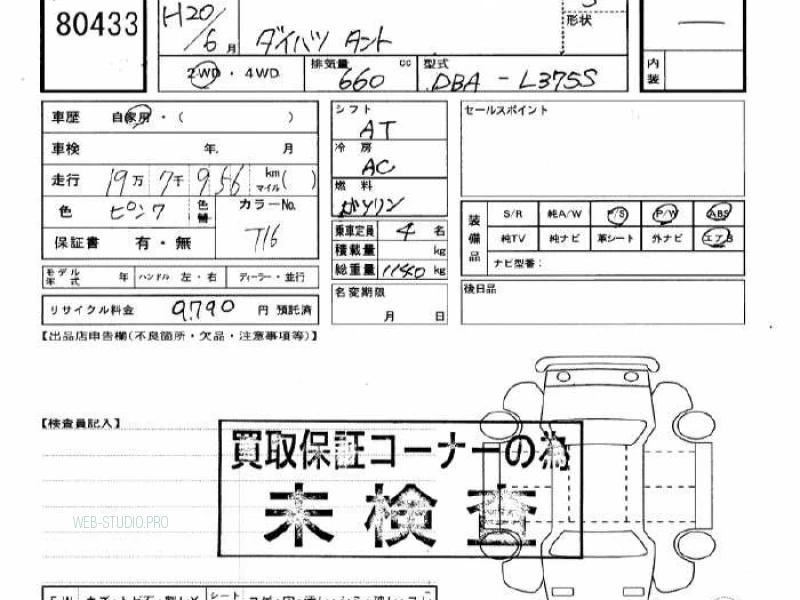 80433 H20/6月 ダイハツ タント 形状
2WD・4WD 排気量 660 cc 型式 DBA-L375S 内装
車歴 自家用・( ) シフト AT セールスポイント
車検 年. 月 冷房 AC
走行 19万 7千 956 km マイル( ) 燃料 ガソリン
色 ピンク 色替 カラーNo. T16
保証書 有・無
乗車定員 4 名
積載量 kg
総重量 1140 kg
装備品 S/R 純A/W P/S P/W ABS
純TV 純ナビ 革シート 外ナビ エアB
ナビ型番:
モデル年式 年 ハンドル 左・右 ディーラー・並行
名変期限 月 日
後日品
リサイクル料金 9,790 円 預託済
【出品店申告欄(不良箇所・欠品・注意事項等)】
【検査員記入】
買取保証コーナーの為
未検査
WEB-STUDIO.PRO